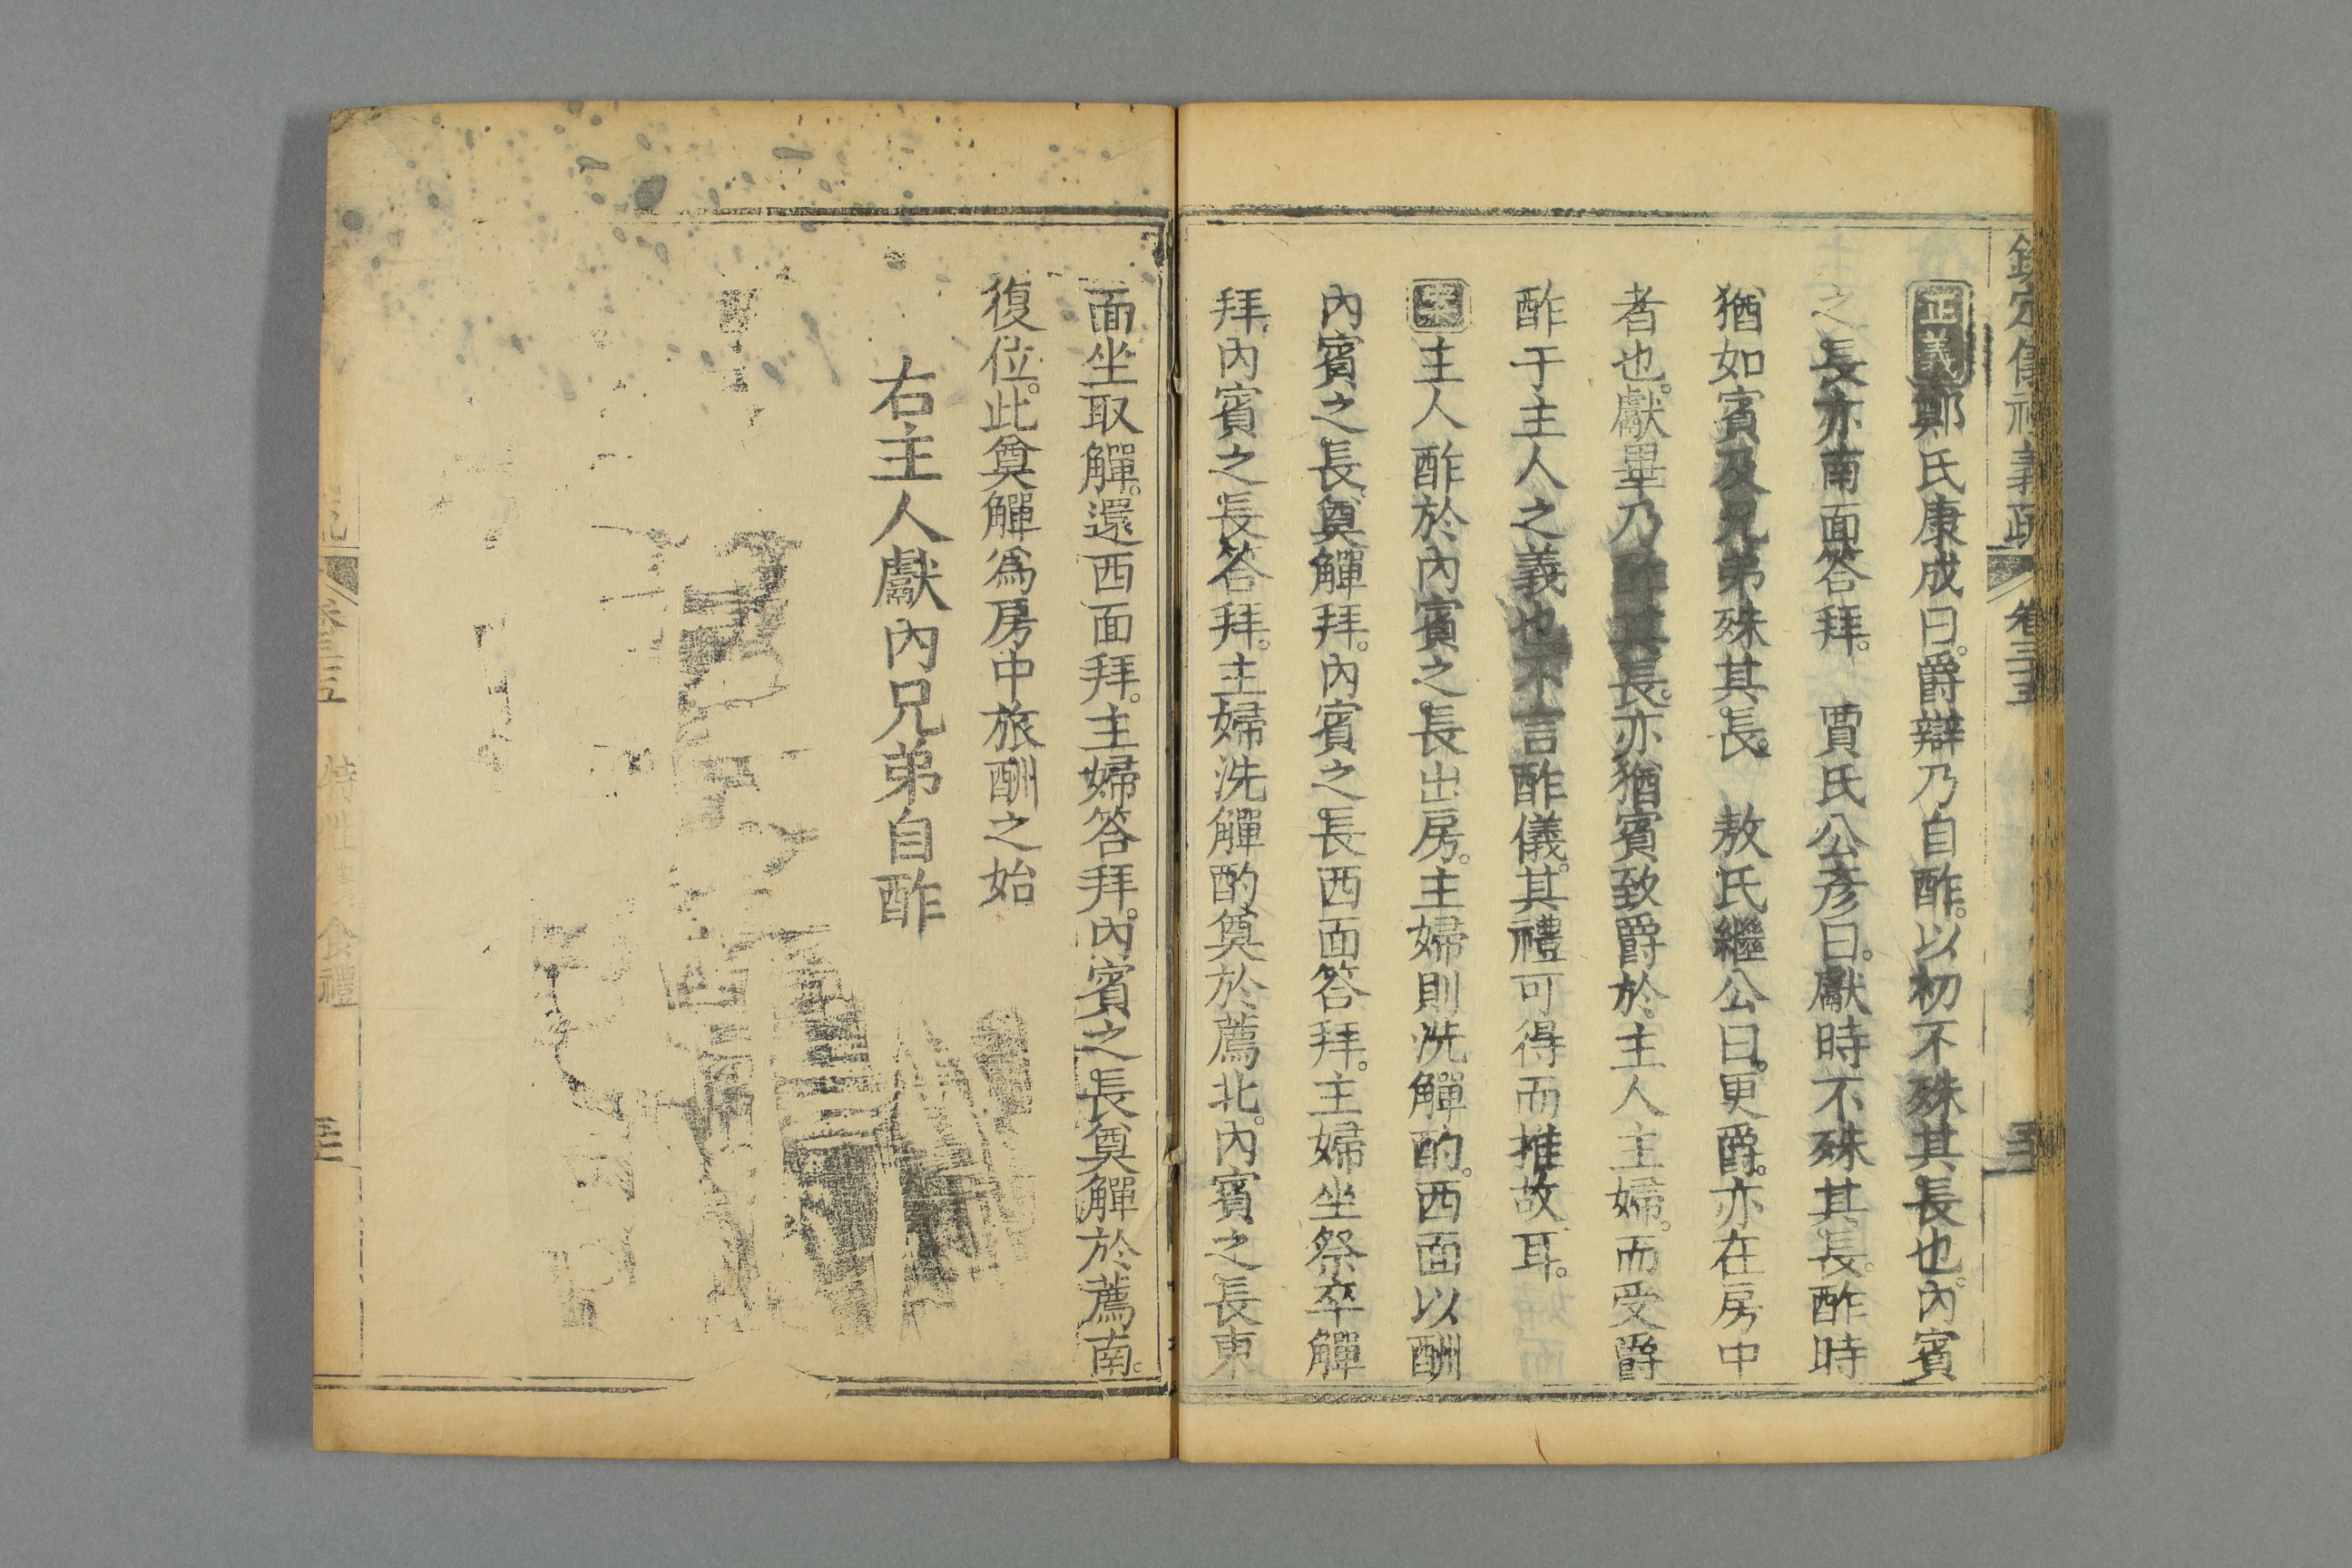 欽定儀禮義疏 卷三十五
正義鄭氏康成曰。爵辯乃自酢。以初不殊其長也。內賓
之長亦南面答拜。 賈氏公彥曰。獻時不殊其長。酢時
猶如賓及兄弟殊其長。 敖氏繼公曰。更爵。亦在房中
者也。獻畢乃酢其長。亦猶賓致爵於主人主婦。而受爵
酢于主人之義也不言酢儀。其禮可得而推故耳。
案主人酢於內賓之長出房。主婦則洗觶酌。西面以酬
內賓之長。奠觶拜。內賓之長西面答拜。主婦坐祭卒觶
拜。內賓之長答拜。主婦洗觶酌奠於薦北。內賓之長東
面坐取觶。還西面拜。主婦答拜。內賓之長奠觶於薦南。
復位。此奠觶爲房中旅酬之始
右主人獻內兄弟自酢
卷三五 特牲饋食禮